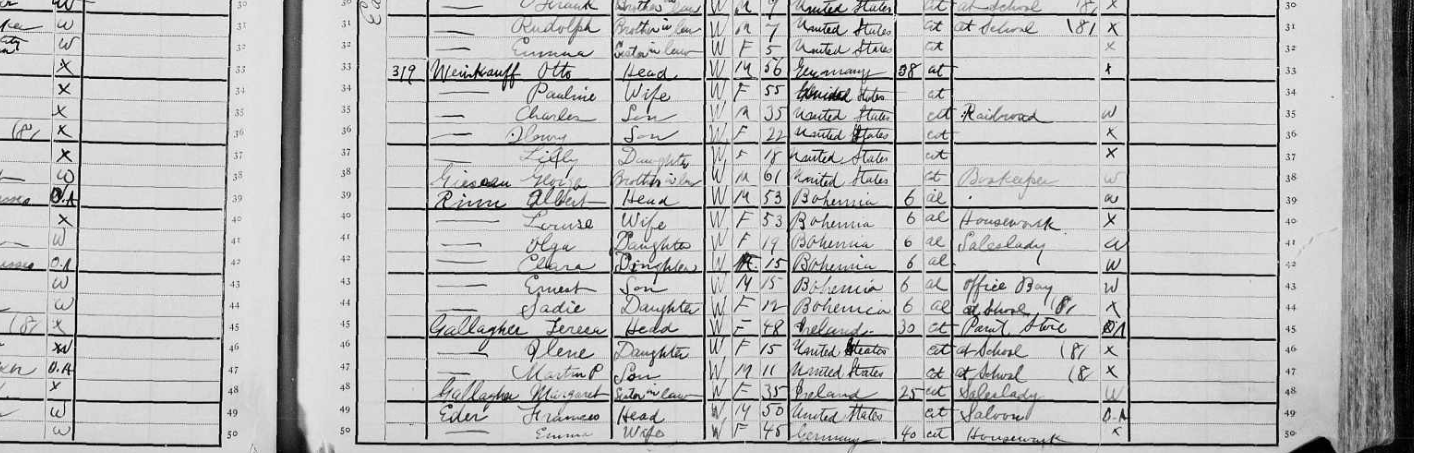 30 Frank Brother in law W M 9 United States cit at School (8) X 30
31 — Rudolph Brother in law W M 7 United States cit at School (8) X 31
32 — Emma Sister in law W F 5 United States cit X 32
33 319 Weinkauff Otto Head W M 56 Germany 38 at X 33
34 — Pauline Wife W F 55 United States at 34
35 — Charles Son W M 35 United States cit Railroad W 35
36 — Henry Son W F 22 United States cit X 36
37 — Lilly Daughter W F 18 United States cit X 37
38 George Brother in law W M 61 United States cit Bookeeper W 38
39 Albert Head W M 53 Bohemia 6 al W 39
40 — Louise Wife W F 53 Bohemia 6 al Housework X 40
41 — Olga Daughter W F 19 Bohemia 6 al Saleslady W 41
42 — Clara Daughter W F 15 Bohemia 6 al W 42
43 — Ernest Son W M 15 Bohemia 6 al office Boy W 43
44 — Sadie Daughter W F 12 Bohemia 6 al at School (8) X 44
45 Gallagher Teresa Head W F 48 Ireland 30 cit Paint Store OA 45
46 — Daughter W F 15 United States cit at School (8) X 46
47 — Martin P Son W M 11 United States cit at School (8 X 47
48 Gallagher Margaret Sister in law W F 35 Ireland 25 cit Saleslady W 48
49 Eder Frances Head W M 50 United States cit Saloon O.A 49
50 — Emma Wife W F 45 Germany 40 cit Housework X 50